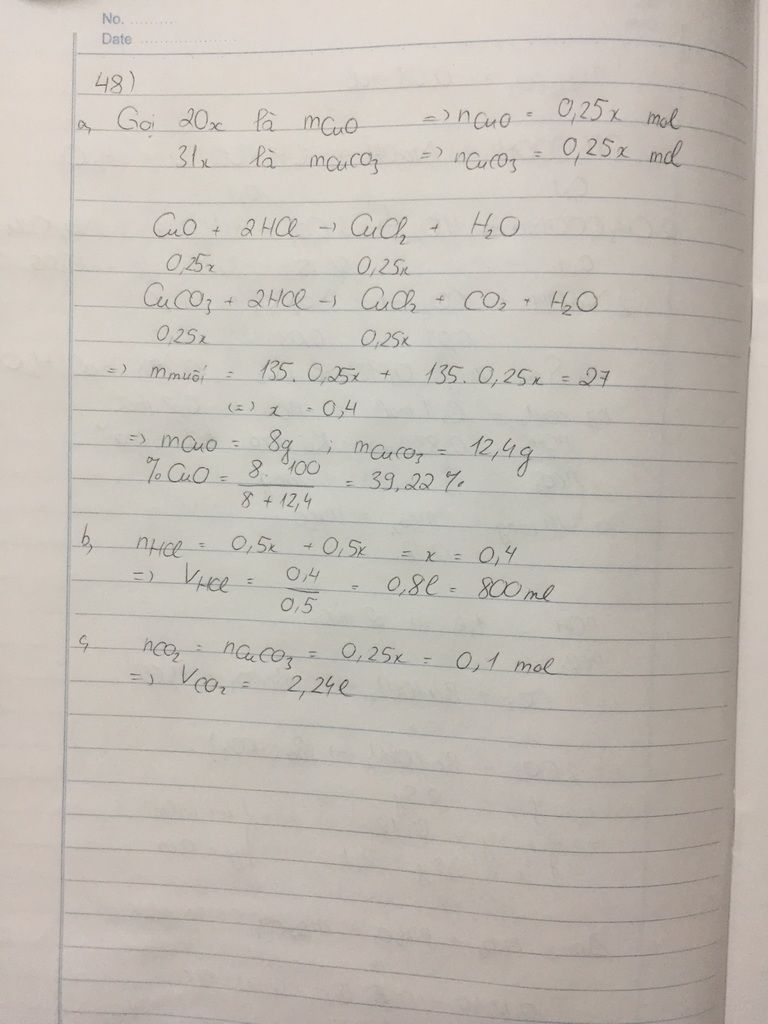 No. ..........
Date ......................
48)
a, Gọi 20x là mCuO => nCuO = 0,25x mol
31x là mCuCO3 => nCuCO3 = 0,25x mol
CuO + 2HCl -> CuCl2 + H2O
0,25x 0,25x
CuCO3 + 2HCl -> CuCl2 + CO2 + H2O
0,25x 0,25x
=> mmuối = 135. 0,25x + 135. 0,25x = 27
(=) x = 0,4
=> mCuO = 8g ; mCuCO3 = 12,4g
%CuO = 8. 100 / 8 + 12,4 = 39,22 %
b, nHCl = 0,5x + 0,5x = x = 0,4
=> VHCl = 0,4 / 0,5 = 0,8l = 800 ml
c, nCO2 = nCuCO3 = 0,25x = 0,1 mol
=> VCO2 = 2,24l